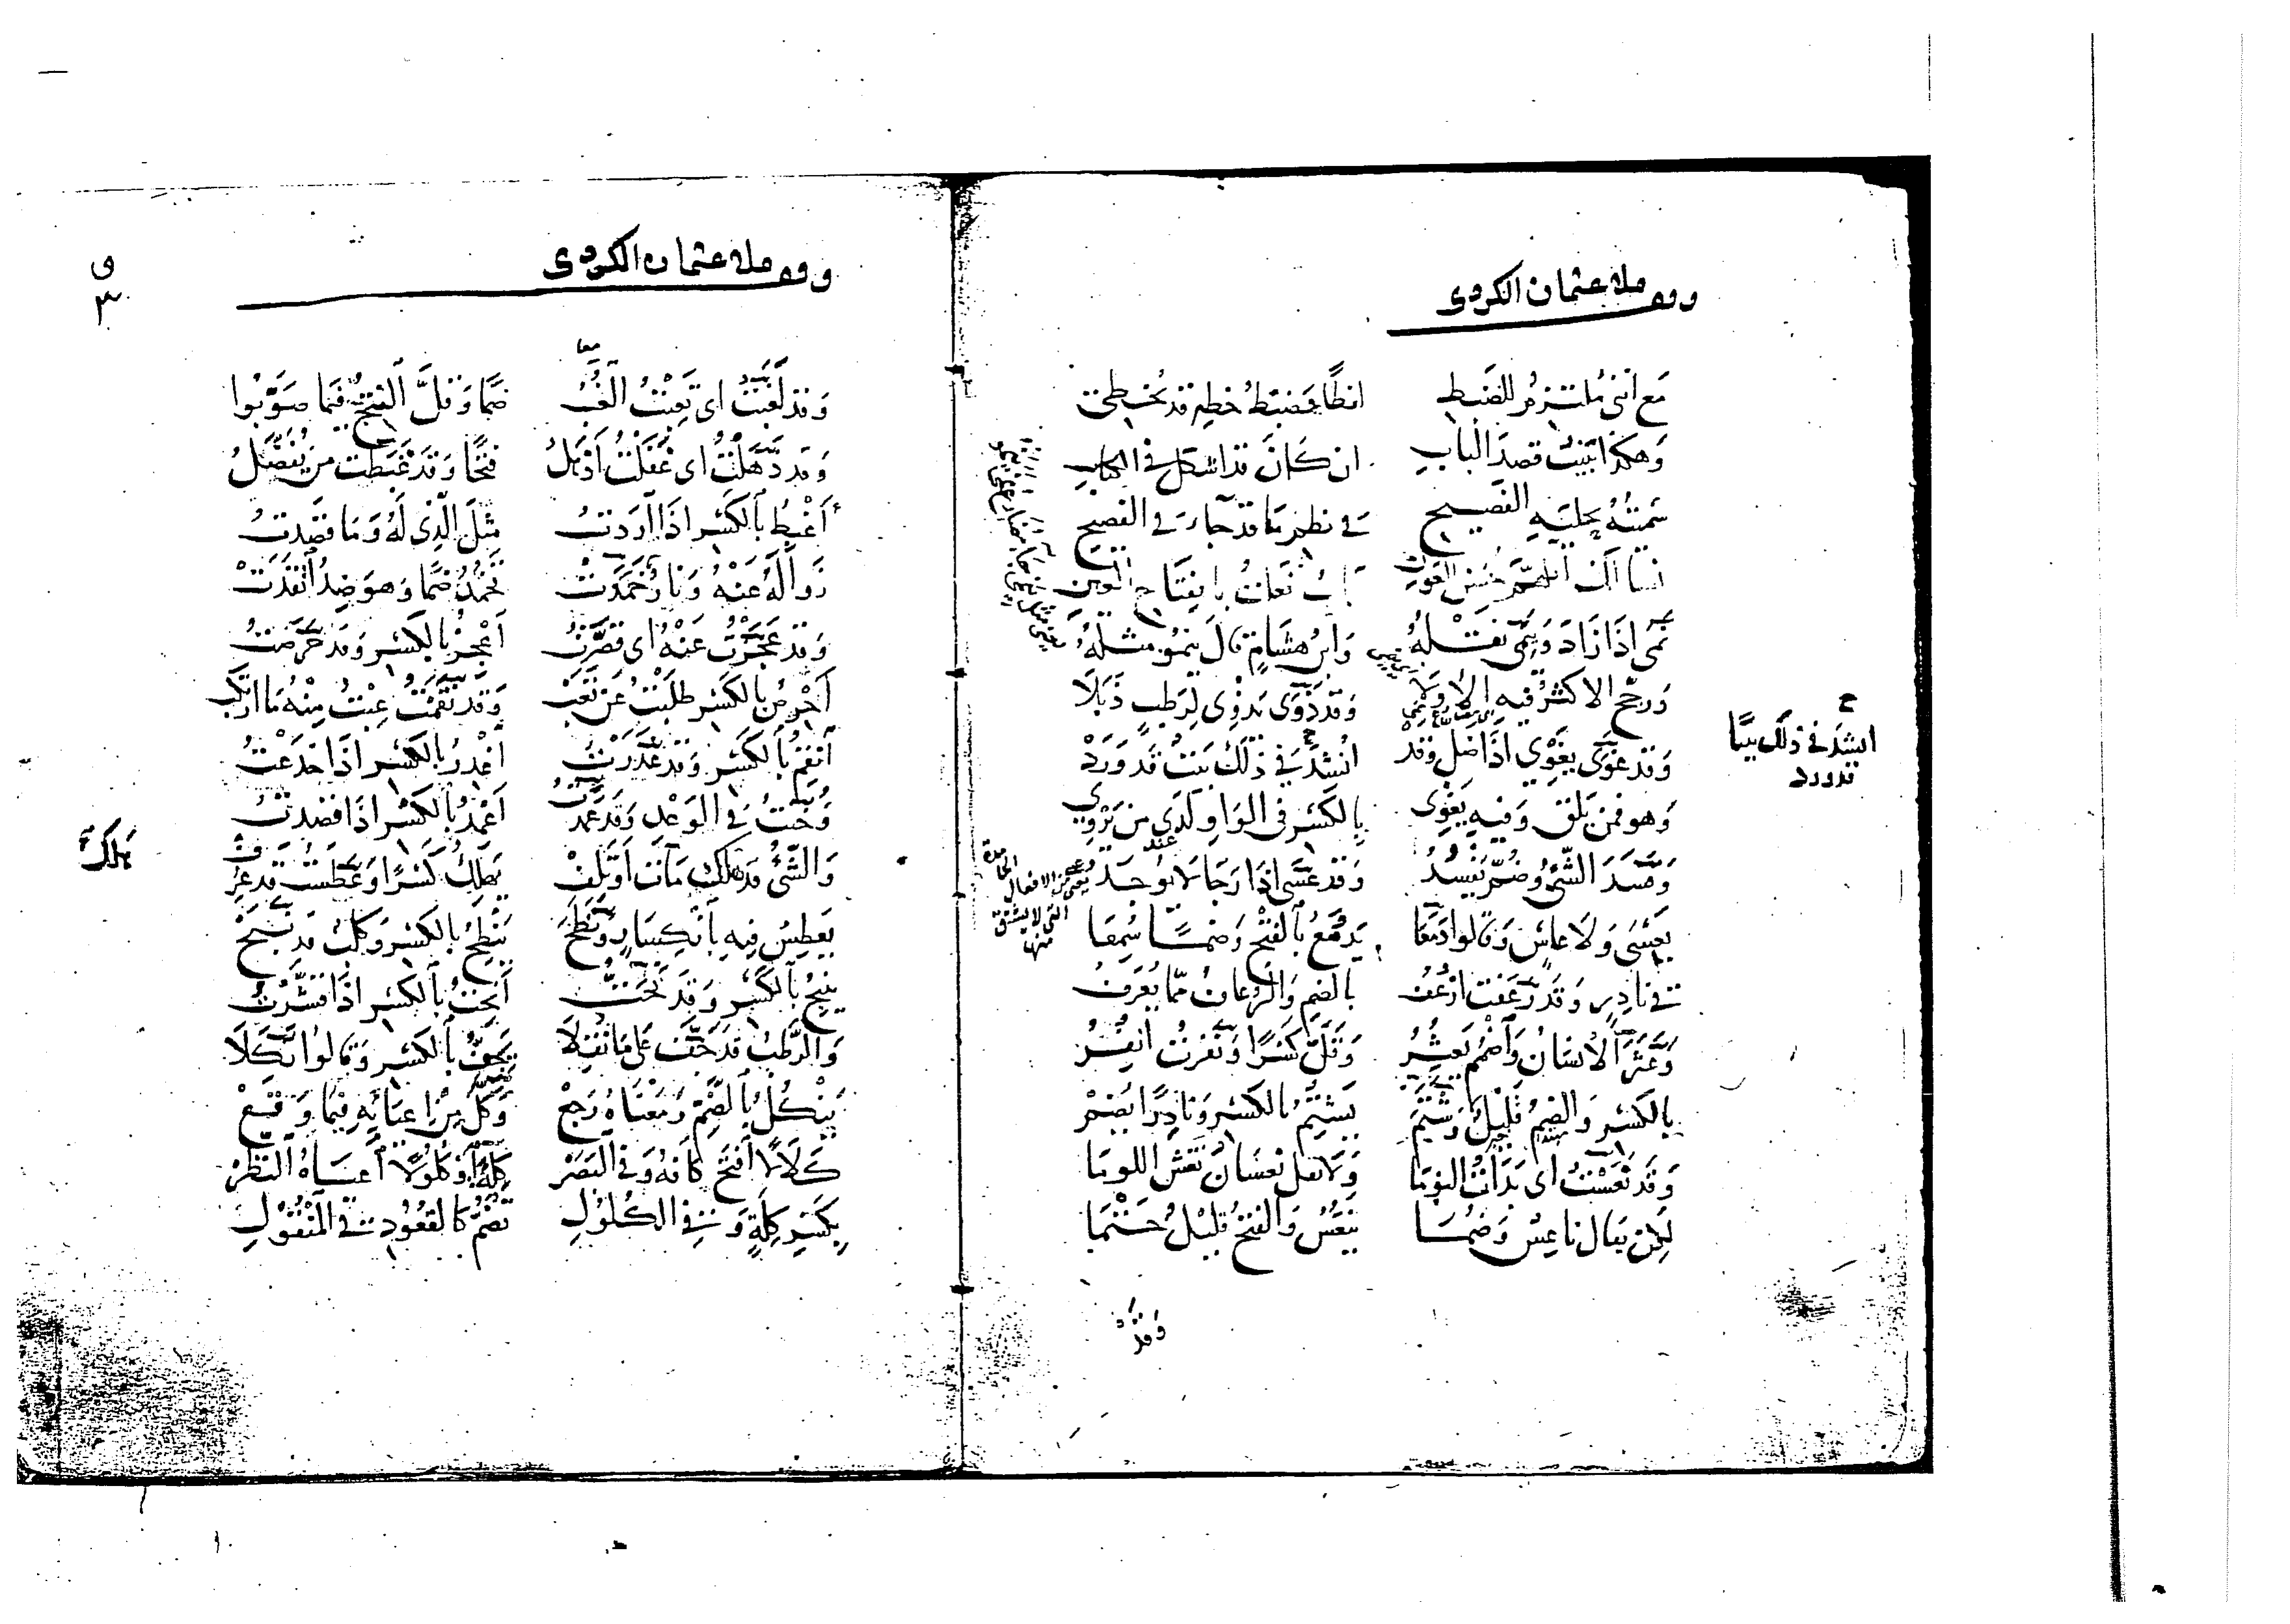 وقف ملا عثمان الكردي
مع انني ملتزم للضبط لفظا فضبط خطه قد يخطي
وهكذا ابنيت قصد الباب ان كان قد اشكل في الكتاب
سميته بحلية الفصيح في نظم ما قد جاء في الفصيح
باب فعلت بانفتاح العين
نمى اذا زاد وينمى نقله وابن هشام قال ينمو مثله
ورجح الاكثر فيه الاولا وقد ذوى يذوي لرطب ذبلا
وقد غوى يغوي اذا ضل وقد انشد في ذلك بيت قد ورد
انشد في ذلك بيتا
قد ورد
وهو فمن يلق وفيه يغوي بالكسر في الواو لدى من يروي
وفسد الشيء وضم يفسد وقد عسى اذا رجا لا يوجد
من الافعال الجامدة
التي لا يشتق
منها
يعسى ولا عاس وقالوا دمعا يدمع بالفتح وضما سمعا
في نادر وقد رعفت ارعف بالضم والرعاف مما يعرف
وعثر الانسان واضمم يعثر وقل كسرا ونفرت انفر
بالكسر والضم قليل وشتم يشتم بالكسر ونادرا يضم
وقد نعست اي بدأت النوما ولا تقل نعسان تخش اللوما
لكن يقال ناعس وضما ينعس والفتح قليل حتما
وقد
وقف ملا عثمان الكردي
٣
معا
وقد لغبت اي تعبت الغب ضما وقل الفتح فيما صوبوا
وقد ذهلت اي غفلت اذهل فتحا وقد غبطت من يفضل
اغبط بالكسر اذا اردت مثل الذي له وما قصدت
زواله عنه ونار خمدت تخمد ضما وهو ضد اتقدت
وقد عجزت عنه اي قصرت اعجز بالكسر وقد حرصت
احرص بالكسر طلبت عن تعب وقد نقمت عبت منه ما ارتكب
انقم بالكسر وقد غدرت اغدر بالكسر اذا خدعت
وخنت في الوعد وقد عمدت اعمد بالكسر اذا قصدت
والشيء قد هلك مات او تلف يهلك كسرا وعطست قد عرف
هلك
يعطس فيه بانكسار ونطح ينطح بالكسر وكلب قد نبح
ينبح بالكسر وقد نحت انحت بالكسر اذا قشرت
والرطب قد جف على ما نقلا يجف بالكسر وقالوا نكلا
ينكل بالضم ومعناه رجع وكل من اعيائه فيما وقع
كلالا افتح كافه وفي البصر كلة او كلولا اعياه النظر
بكسر كلة وفي الكلول تضم كالقعود في المنقول